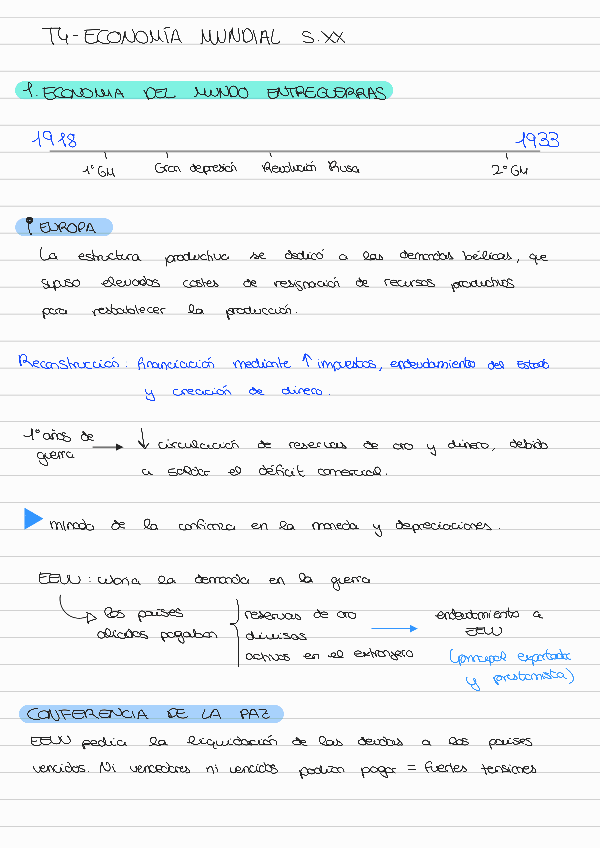 T4-ECONOMÍA MUNDIAL S.XX
1. ECONOMIA DEL MUNDO ENTREGUERRAS
1918 1933
1º GM Gran depresión Revolución Rusa 2º GM
EUROPA
La estructura productiva se dedicó a las demandas bélicas, que
supuso elevados costes de resignación de recursos productivos
para restablecer la producción.
Reconstrucción. financiación mediante ↑ impuestos, endeudamiento del Estado
y creación de dinero.
1º años de guerra → ↓ circulación de reservas de oro y dinero, debido
a saldar el déficit comercial.
minado de la confianza en la moneda y depreciaciones.
EEUU: cubria la demanda en la guerra
los países reservas de oro endeudamiento a
aliados pagaban divisas → EEUU
activos en el extranjero (principal exportador
y prestamista)
CONFERENCIA DE LA PAZ
EEUU pedia la liquidación de las deudas a los países
vencidos. Ni vencedores ni vencidos podían pagar = fuertes tensiones